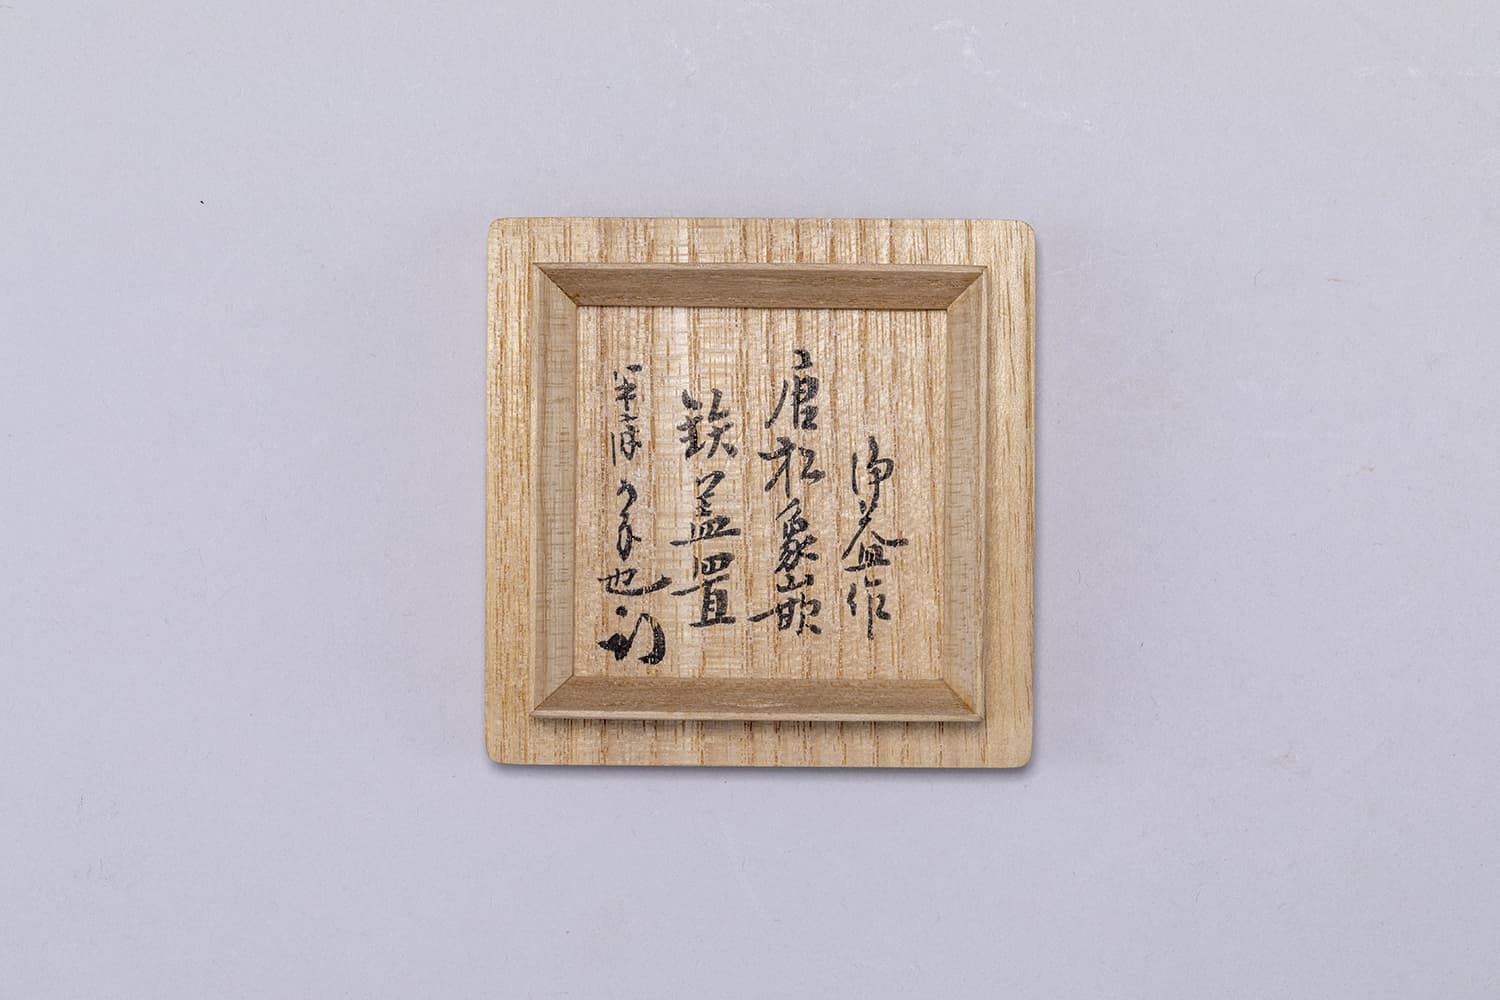 浄益作
唐松象嵌
鉄蓋置
半床
也